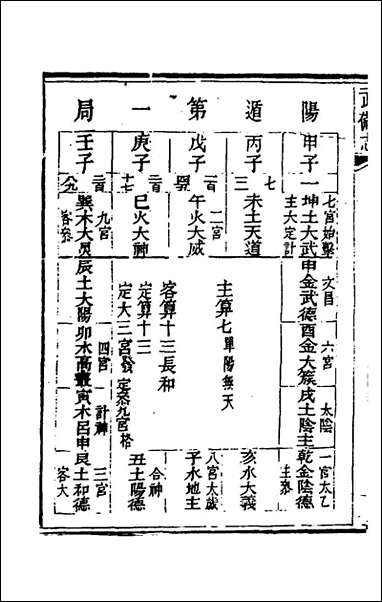 武備志
陽遁第一局
甲子 一
丙子 七三
戊子 二百
庚子 二百十七
壬子 二百八九
七宮始擊 文昌 六宮 太陰 一宮太乙
坤土大武申金武德酉金大簇戌土陰主乾金陰德
主大定計 主參
未土天道
主算七單陽無天
亥水大義
二宮
午火大威
八宮太歲
子水地主
客算十三長和
巳火大神
定算十三
定大三宮發定參九宮格
合神
丑土陽德
九宮 四宮 計神 三宮
巽木大炅辰土太陽卯木高叢寅木呂申艮土和德
客參 客大